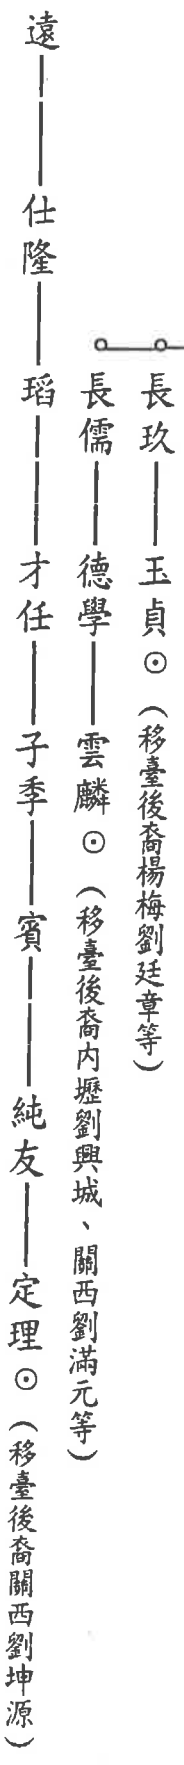 長玖——玉貞⊙(移臺後裔楊梅劉廷章等)
長儒——德學——雲麟⊙(移臺後裔内壢劉興城、關西劉滿元等)
遠——仕隆——瑫——才任——子季——賓——純友——定理⊙(移臺後裔關西劉坤源)